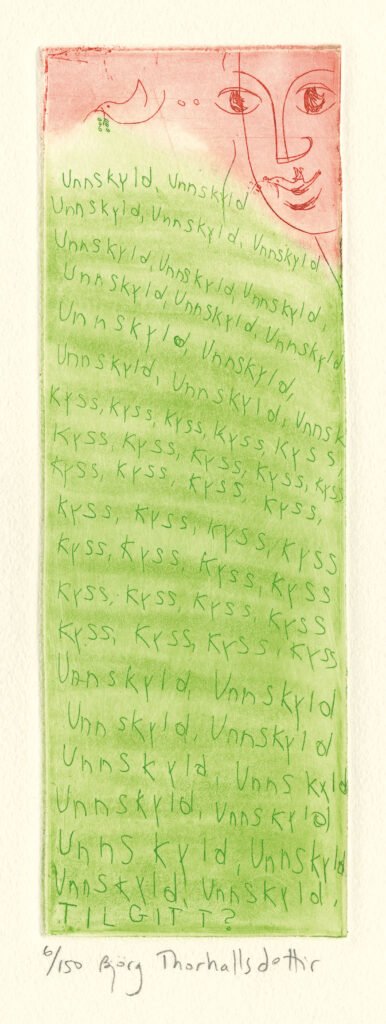 Unnskyld, Unnskyld
Unnskyld, Unnskyld, Unnskyld
Unnskyld, Unnskyld, Unnskyld,
Unnskyld, Unnskyld, Unnskyld
Unnskyld, Unnskyld,
Unnskyld, Unnskyld, Unnsk
Kyss, Kyss, Kyss, Kyss, Kyss,
Kyss, Kyss, Kyss, Kyss, Kyss
Kyss, Kyss, Kyss, Kyss,
Kyss, Kyss, Kyss, Kyss
Kyss, Kyss, Kyss, Kyss
Kyss, Kyss, Kyss, Kyss
Kyss, Kyss, Kyss, Kyss
Unnskyld, Unnskyld
Unnskyld, Unnskyld
Unnskyld, Unnskyld
Unnskyld, Unnskyld
Unnskyld, Unnskyld
Unnskyld, Unnskyld,
TILGITT?
6/150 Bjørg Thorhallsdottir